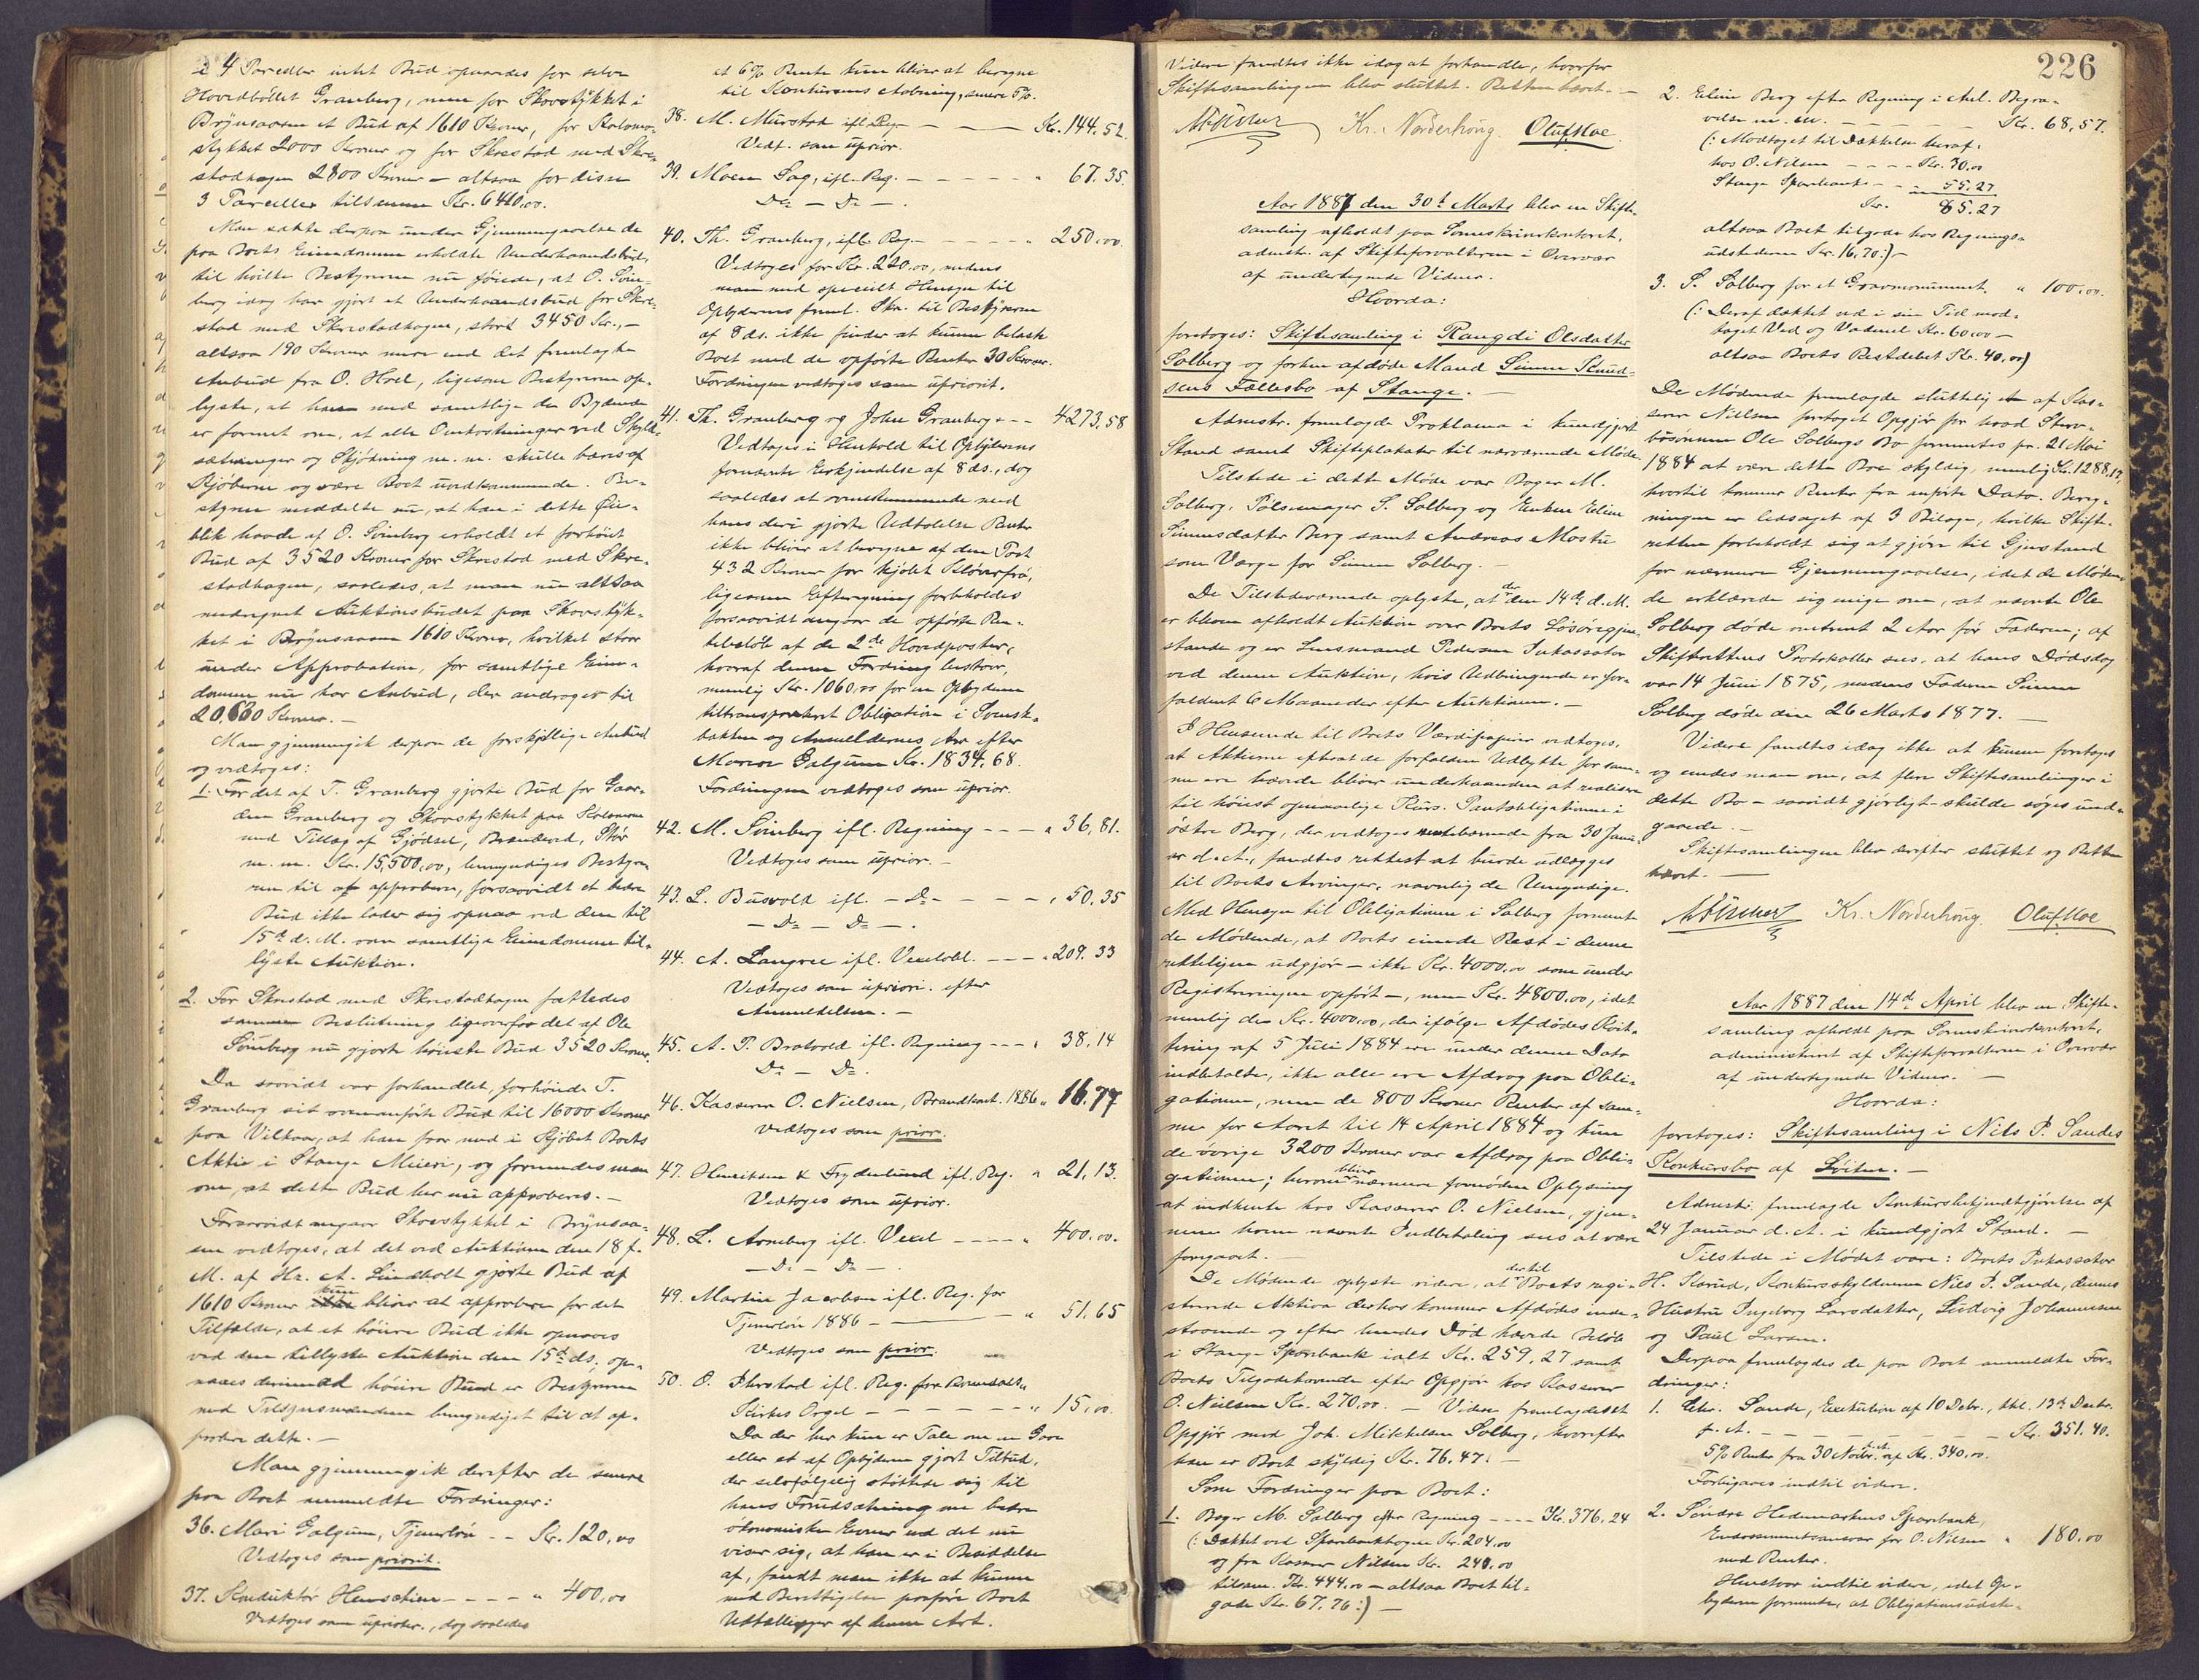 4 Parceller intet Bud opnaaedes for selve
Hovedbøllet Granberg, men for Skovstykket i
Brynsaasen et Bud af 1610 Kroner, for Kolomo-
stykket 2000 Kroner og for Skrestad med Skre-
stadhagen 2800 Kroner – altsaa for disse
3 Parceller tilsammen Kr. 6410.00.
Man satte derpaa under Gjennemgaaelse de
paa Boets Eiendomme erholdte Underhaandsbud,
til hvilke Bestyreren nu føiede, at O. Sønz-
berg idag har gjort et Underhaandsbud for Skre-
stad med Skrestadhagen, stort 3450 Kr., –
altsaa 190 Kroner mere end det fremlagte
Anbud fra O. Hoel, ligesom Bestyreren op-
lyste, at han med samtlige de Bydende
er forenet om, at alle Omkostninger ved Skyld-
sætninger og Skjødning m. m. skulle bæres af
Kjøberne og være Boet uvedkommende. Be-
styreren meddelte nu, at han i dette Øie-
blik havde af O. Sønberg erholdt et forhøiet
Bud af 3520 Kroner for Skrestad med Skre-
stadhagen, saaledes, at man nu altsaa
medregnet Auktionsbudet paa Skovstyk-
ket i Brynsaasen 1610 Kroner, hvilket staar
under Approbation, for samtlige Eien-
domme nu har Anbud, der andrager til
20,630 Kroner. –
Man gjennemgik derpaa de forskjellige Anbud
og vedtoges:
1. For det af T. Granberg gjorte Bud for Gaar-
den Granberg og Skovstykket paa Kolomoen
med Tillæg af Gjødsel, Brændeved, Stør
m. m. Kr. 15,500,00, bemyndiges Bestyre-
ren til at approbere, forsaavidt et bedre
Bud ikke lader sig opnaa ved den til
15de d. M. over samtlige Eiendomme til-
lyste Auktion.
2. For Skrestad med Skrestadhagen fattedes
samme Beslutning ligeoverfor det af Ole
Sønberg nu gjorte høieste Bud 3520 Kroner.
Da saavidt var forhandlet, forhøiede T.
Granberg sit ovenanførte Bud til 16000 Kroner
paa Vilkaar, at han faar med i Kjøbet Boets
Aktie i Stange Meieri, og forenedes man
om, at dette Bud her nu approberes. –
Forsaavidt angaar Skovstykket i Brynsaa-
sen vedtoges, at det ved Auktionen den 18 f.
M. af Hr. A. Lindholt gjorte Bud af
1610 Kroner kun bliver at approbere for det
Tilfælde, at et høiere Bud ikke opnaaes
ved den tillyste Auktion den 15de ds., op-
naaes derimod høiere Bud er Bestyreren
med Tilsynsmændene bemyndiget til at ap-
probere dette. –
Man gjennemgik derefter de senere
paa Boet anmeldte Fordringer:
36. Mari Galgum, Tjenerløn – – Kr. 120,00
Vedtoges som priorit.
37. Konduktør Henschien – – – " 400,00
Vedtoges som uprior., dog saaledes
at 6% Rente kun bliver at beregne
til Konkursens Aabning, senere 5%.
38. M. Murstad ifl. Reg. – – – Kr. 144.52.
Vedt. som uprior.
39. Moen Sag, ifl. Reg. – – – – " 67.35.
Do – Do – .
40. Th. Granberg, ifl. Reg. – – – – " 250.00
Vedtoges for Kr. 220,00, medens
man med specielt Hensyn til
Opbyderens freml. Skr. til Bestyreren
af 8 ds. ikke finder at kunne belaste
Boet med de opførte Renter 30 Kroner.
Fordringen vedtoges som upriorit.
41. Th. Granberg og John Granberg – – 4273,58
Vedtoges i Henhold til Opbyderens
fornævnte Erkjendelse af 8 ds., dog
saaledes at overensstemmende med
hans deri gjorte Udtalelse Renter
ikke bliver at beregne af den Post
432 Kroner for kjøbt Kløverfrø,
ligesom Efterregning forbeholdes
forsaavidt angaar de opførte Ren-
tebeløb af de 2de Hovedposter,
hvoraf denne Fordring bestaar,
nemlig Kr. 1060,00 for en Opbyderen
tiltransporteret Obligation i Svensk-
bakken og Anmeldernes Arv efter
Maren Galgum Kr. 1834,68.
Fordringen vedtoges som uprior.
42. M. Sønberg ifl. Regning – – – " 36,81.
Vedtoges som uprior. –
43. L. Busvold ifl. – Do – – – – " 50.35
– Do – Do – .
44. A. Langree ifl. Vexelobl. – – – " 209.33
Vedtoges som uprior. efter
Anmeldelsen. –
45. A. P. Bratvold ifl. Regning – – – " 38,14
Do – Do .
46. Kasserer O. Nielsen, Brandkont. 1886 " 16.77
vedtoges som prior.
47. Henriksen & Frydenlund ifl. Reg. " 21,13.
Vedtoges som uprior.
48. L. Arneberg ifl. Vexel – – – – " 400,00.
– Do – Do – .
49. Martin Jacobsen ifl. Reg. for
Tjenerløn 1886 – – – " 51.65
Vedtoges som prior.
50. O. Ihrstad ifl. Reg. for Romedals
Kirkes Orgel – – – – – – " 15,00.
Da der her kun er Tale om en Gave
eller et af Opbyderen gjort Tilbud,
der selvfølgelig støttede sig til
hans Forudsætning om bedre
økonomiske Evner end det nu
viser sig, at han er i Besiddelse
af, fandt man ikke at kunne
med Berettigelse paaføre Boet
Udtællinger af denne Art.
226
Videre fandtes ikke idag at forhandle, hvorfor
Skiftesamlingen blev sluttet. Retten hævet. –
Kr. Norderhoug. Oluf Moe
Aar 1887 den 30te Marts blev en Skifte-
samling afholdt paa Sorenskriverkontoret,
admstr. af Skifteforvalteren i Overvær
af undertegnede Vidner.
Hvorda:
foretoges: Skiftesamling i Rangdi Olsdatter
Solberg og forhen afdøde Mand Simen Knud-
sens Fællesbo af Stange. –
Admstr. fremlagde Proklama i kundgjort
Stand samt Skifteplakater til nærværende Møde.
Tilstede i dette Møde var Bager M.
Solberg, Pølsemager S. Solberg og Enken Eline
Simensdatter Berg samt Andreas Mostue
som Værge for Simen Solberg. –
De Tilstedeværende oplyste, at der den 14de d. M.
er bleven afholdt Auktion over Boets Løsøregjen-
stande og er Lensmand Pedersen Inkassator
ved denne Auktion, hvis Udbringende er for-
faldent 6 Maaneder efter Auktionen. –
I Henseende til Boets Værdipapirer vedtoges,
at Aktierne efterat de forfaldne Udbytte for sam-
me ere hævede bliver underhaanden at realisere
til høiest opnaaelige Kurs. Pantobligationen i
østre Berg, der vedtoges rentebærende fra 30 Janu-
ar d. A., fandtes rettest at burde udlægges
til Boets Arvinger, navnlig de Umyndige.
Med Hensyn til Obligationen i Solberg formente
de Mødende, at Boets eiende Rest i denne
rettelig udgjør – ikke Kr. 4000.00 som under
Registreringen opført –, men Kr. 4800.00, idet
nemlig de Kr. 4000,00, der ifølge Afdødes Kvit-
tering af 5 Juli 1884 ere under denne Dato
indbetalte, ikke alle ere Afdrag paa Obli-
gationen, men de 800 Kroner Renter af sam-
me for Aaret til 14 April 1884 og kun
de øvrige 3200 Kroner var Afdrag paa Obli-
gationen; herom bliver nærmere fornøden Oplysning
at indhente hos Kasserer O. Nielsen, gjen-
nem hvem nævnte Indbetaling sees at være
foregaaet. –
De Mødende oplyste videre, at der til Boets regi-
strerede Aktiva derhos kommer Afdødes inde-
staaende og efter hendes Død hævede Beløb
i Stange Sparebank ialt Kr. 259,27 samt
Boets Tilgodehavende efter Opgjør hos Kasserer
O. Nielsen Kr. 270,00. – Videre fremlagdes et
Opgjør med Joh. Mikkelsen Solberg, hvorefter
han er Boet skyldig Kr. 76.47. –
Som Fordringer paa Boet:
1. Bager M. Solberg efter Regning – – – – Kr. 376.24
(: Dækket ved Sparebankbogen Kr. 204.00
og fra Kasserer Nilsen Kr. 240.00
tilsam. Kr. 444.00 – altsaa Boet til-
gode Kr. 67,76 :) –
2. Eline Berg efter Regning i Anl. Begra-
velse m. m. – – – – – – Kr. 68,57.
(: Modtaget til Dækkelse heraf:
hos O. Nilsen – – – – Kr. 30.00
Stange Sparebank – – " 55.27
Kr. 85.27
altsaa Boet tilgode hos Regnings-
udstederen Kr. 16,70 :) –
3. S. Solberg for et Gravmonument. " 100,00.
(: Deraf dækket ved i sin Tid mod-
taget Ved og Vadmel Kr. 60.00 –
altsaa Boets Restdebet Kr. 40,00)
De Mødende fremlagde sluttelig et af Kas-
serer Nielsen foretaget Opgjør for hvad Stervo-
bosønnen Ole Solbergs Bo formentes pr. 21 Mai
1884 at være dette Boe skyldig, nemlig Kr. 1288,17,
hvortil kommer Renter fra anførte Dato. Bereg-
ningen er ledsaget af 3 Bilage, hvilke Skifte-
retten forbeholdt sig at gjøre til Gjenstand
for nærmere Gjennemgaaelse, idet de Møden-
de erklærede sig enige om, at nævnte Ole
Solberg døde omtrent 2 Aar før Faderen; af
Skifterettens Protokoller sees, at hans Dødsdag
var 14 Juni 1875, medens Faderen Simen
Solberg døde den 26 Marts 1877. –
Videre fandtes idag ikke at kunne foretages
og enedes man om, at flere Skiftesamlinger i
dette Bo – saavidt gjørligt – skulde søges und-
gaaede. –
Skiftesamlingen blev derefter sluttet og Retten
hævet. –
Kr. Norderhoug. Oluf Moe
Aar 1887 den 14de April blev en Skifte-
samling afholdt paa Sorenskriverkontoret,
administreret af Skifteforvalteren i Overvær
af undertegnede Vidner. –
Hvorda:
foretoges: Skiftesamling i Nils P. Sandes
Konkursbo af Løiten. –
Admstr. fremlagde Konkursbekjendtgjørelse af
24 Januar d. A. i kundgjort Stand. –
Tilstede i Mødet vare: Boets Inkassator
H. Karud, Konkursskyldneren Nils P. Sande, dennes
Hustru Ingeborg Larsdatter, Ludvig Johannesen
og Paul Larsen.
Derpaa fremlagdes de paa Boet anmeldte For-
dringer:
1. Chr. Sande, Exekution af 10 Debr., thl. 13de Decbr.
f. A. – – – – – – – – Kr. 351.40.
5% Renter fra 30 Novbr. s. A. af Kr. 340.00.
Forbigaaes indtil videre.
2. Søndre Hedemarkens Sparebank,
Endossementsansvar for O. Nilsen " 180.00
med Renter.
Henstaar indtil videre, idet Op-
byderen formente, at Obligationsudste-